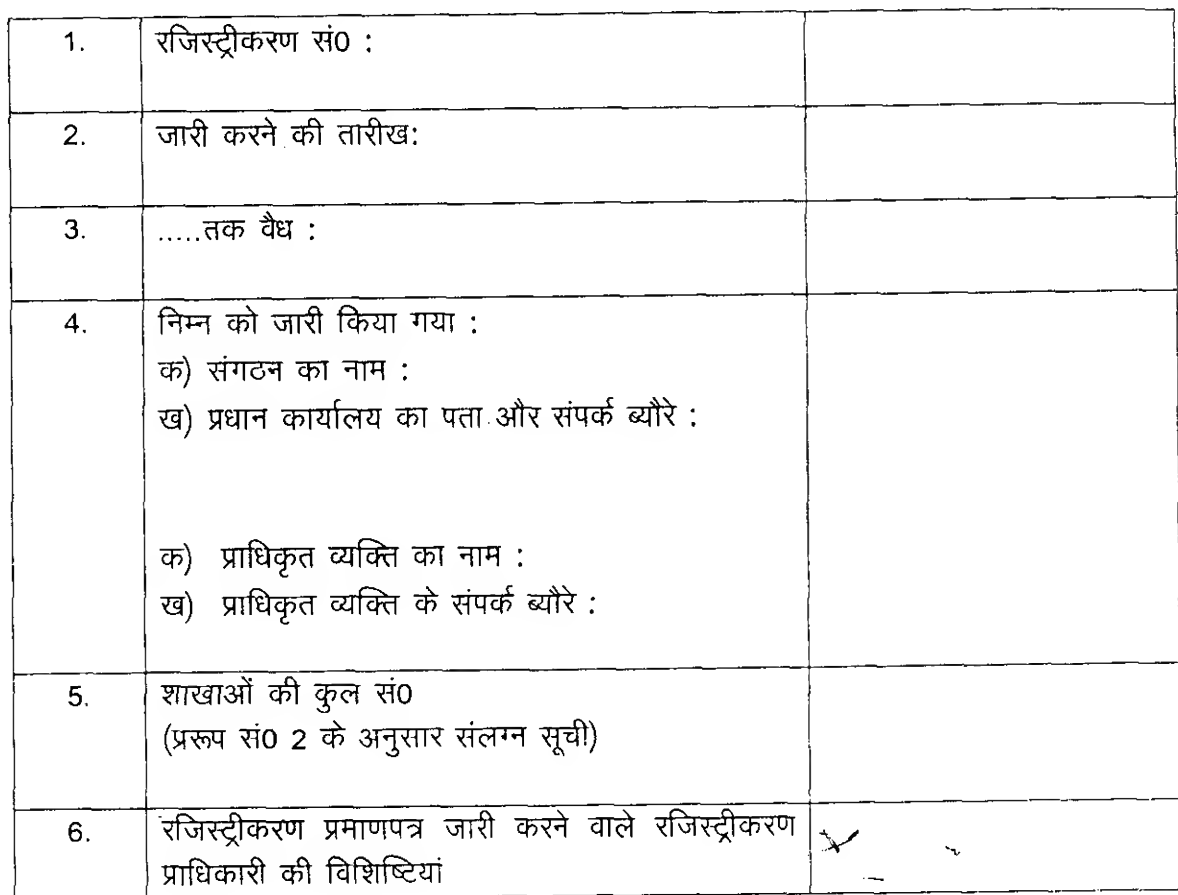 1. रजिस्ट्रीकरण सं0 :
2. जारी करने की तारीख:
3. .....तक वैध :
4. निम्न को जारी किया गया :
क) संगठन का नाम :
ख) प्रधान कार्यालय का पता और संपर्क ब्यौरे :
क) प्राधिकृत व्यक्ति का नाम :
ख) प्राधिकृत व्यक्ति के संपर्क ब्यौरे :
5. शाखाओं की कुल सं0
(प्ररूप सं0 2 के अनुसार संलग्न सूची)
6. रजिस्ट्रीकरण प्रमाणपत्र जारी करने वाले रजिस्ट्रीकरण
प्राधिकारी की विशिष्टियां